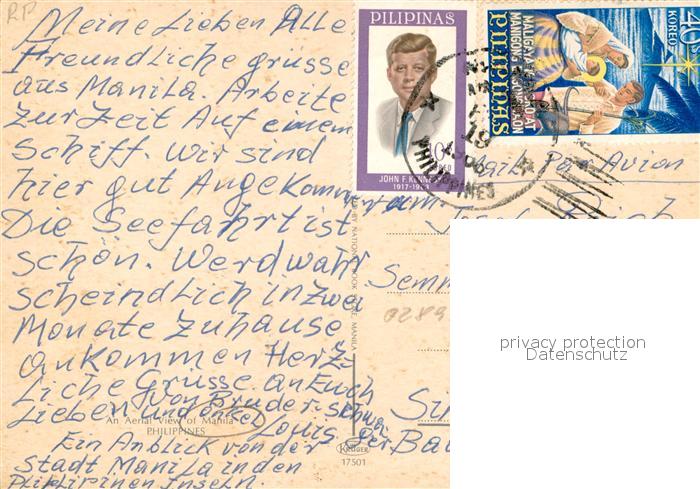 RP
Meine Lieben Alle
Freundliche grüsse
aus Manila. Arbeite
zur Zeit Auf einem
Schiff. Wir sind
hier gut Angekommen
Die Seefahrt ist
schön. Werd wahr
scheindlich in zwei
Monate zuhause
ankommen Herz-
Liche Grüsse an Euch
Lieben und onkel
von Bruder. Schwa
Louis. ger
An Aerial View of Manila
PHILIPPINES
Ein Anblick von der
Stadt Manila in den
Philipinen Inseln.
PILIPINAS
JOHN F. KENNEDY
1917-1963
40
KOREO
MALIGAYANG PASKO AT
MANIGONG BAGONG TAON
PILIPINAS
PHILIPPINES
Par Avion
Semm
0289
BY NATIONAL BOOK STORE, MANILA
KRÜGER
17501
privacy protection
Datenschutz